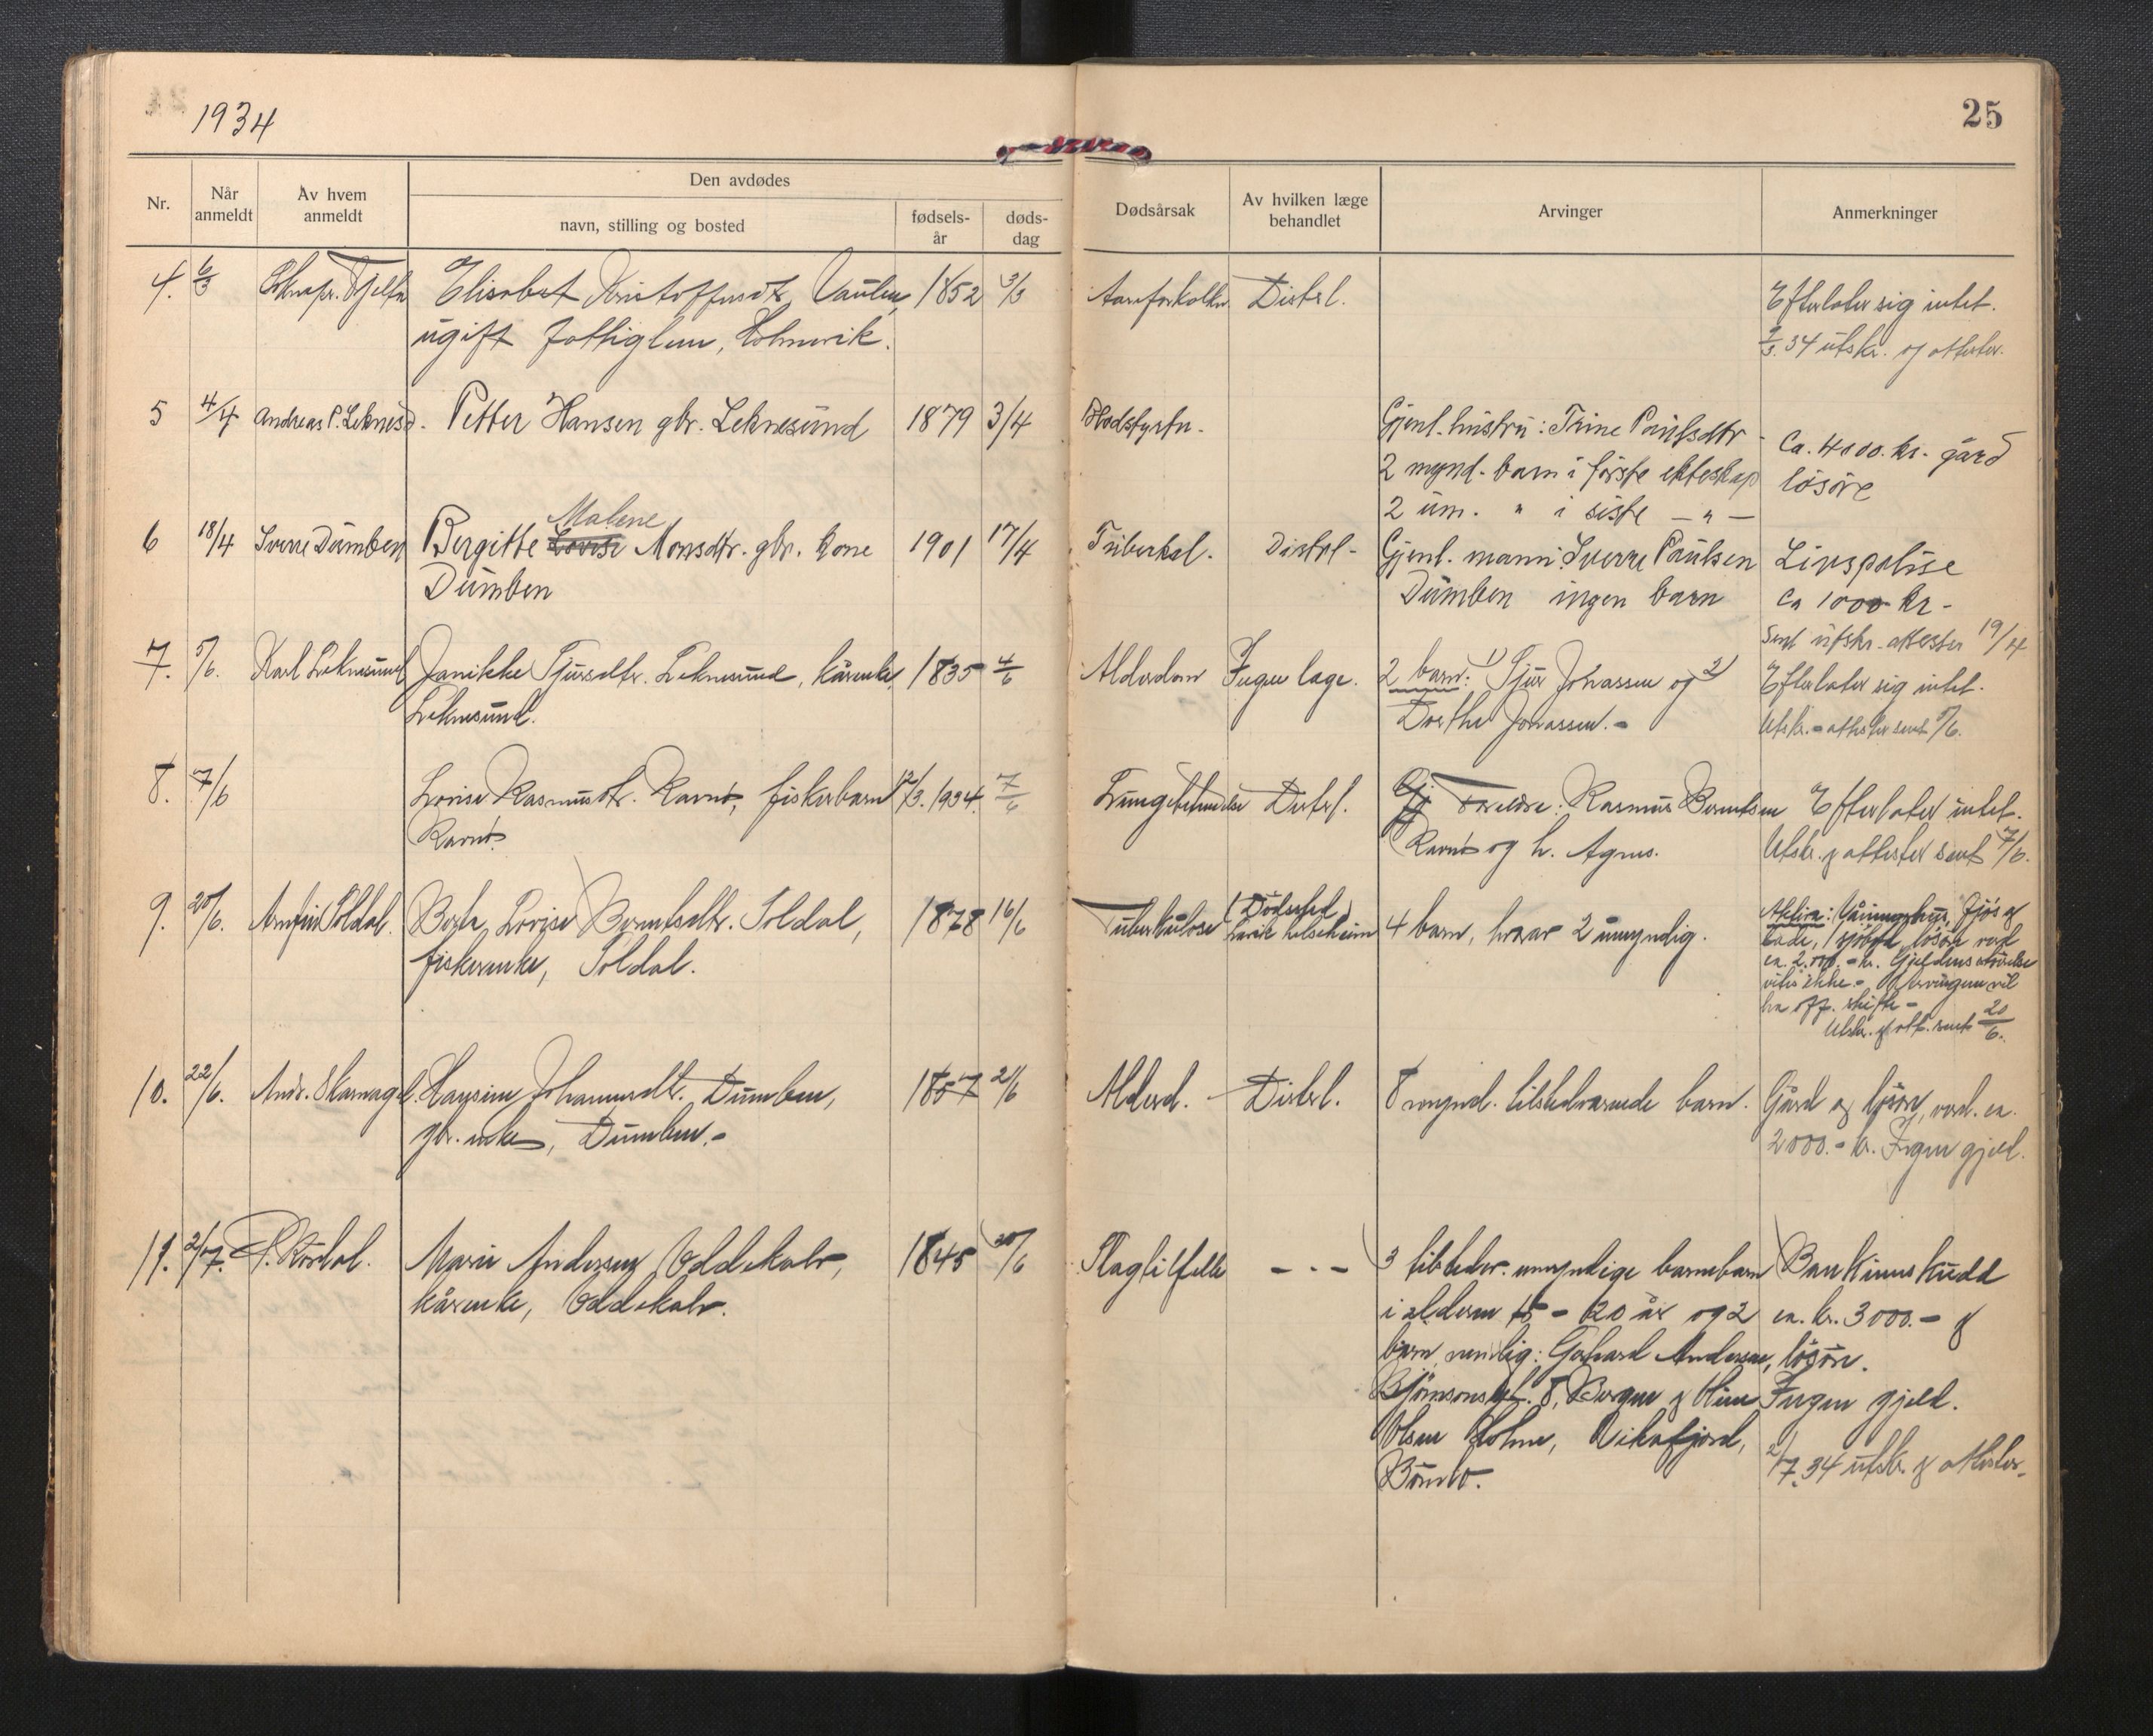 1934
25
Nr.
Når anmeldt
Av hvem anmeldt
Den avdødes
navn, stilling og bosted
fødsels-år
døds-dag
Dødsårsak
Av hvilken læge behandlet
Arvinger
Anmerkninger
4. 6/3 Elisabet Kristoffersdtr. Vaulen, 1852 3/3 Aareforkalkn. Distrl. Efterlater sig intet.
ugift fattiglem, Holmevik. 34 utskr. og attester.
5 4/4 Andreas P. Leknesd. Petter Hansen gbr. Leknesund 1879 3/4 Blodstyrtn. Gjenl. hustru: Trine Paulsdtr Ca. 4000 kr. gård
2 mynd. barn i første ekteskap løsøre
2 um. " i siste — " —
6 18/4 Sverre Dumben Bergitte Lovise Malene Monsdtr. gbr. kone 1901 17/4 Tuberkul. Distrl. Gjenl. mann: Sverre Paulsen Livspolise
Dumben Dumben ingen barn ca 1000 kr.
Sent utskr. attester 19/4
7. 5/6. Karl Leknesund Janikke Sjursdtr. Leknesund, kårenke, 1835 4/6 Alderdom Ingen læge. 2 barn: 1) Sjur Johassen og 2) Efterlater sig intet.
Leknesund. Dorthe Jonassen. - Utskr. - attester sent 5/6.
8. 7/6 Lovise Rasmusdtr. Ravnø, fiskerbarn 12/3. 1934. 7/6 Lungebetendelse Distrl. Gj Foreldre: Rasmus Berntsen Efterlater intet.
Ravnø. Ravnø og h. Agnes. Utskr. og attester sent 7/6.
9. 20/6. Arnfin Soldal. Berta Lovise Berntsdtr. Soldal, 1878 16/6 Tuberkulose (Dødssted helseheim) 4 barn, hvorav 2 umyndig. Aktiva: Våningshus, fjøs og
fiskerenke, Soldal. løsøre verd
ca. 2.000.- kr.
ikke. - Arvingene vil
ha off. skifte -
Utskr. og att. sent 20/6.
10. 22/6. Andr. Hansine Johannesdtr. Dumben, 1857 21/6 Alderd. Distrl. 8 mynd. tilstedværende barn. Gård og løsøre, verd. ca.
gbr. enke, Dumben. - 2000.- kr. Ingen gjeld.
11. 2/7. Marie Andersen Oddekalv, 1845 30/6 Slagtilfelle - " - 3 tilstedev. umyndige barnebarn Bankinnskudd
kårenke, Oddekalv. i alderen 15 - 20 år og 2 ca. kr. 3000.- og
barn, nemlig: Gerhard Andersen, løsøre.
Bjørnsonsgt. 8, Bergen og Ingen gjeld.
Olsen Holme, Vikafjord,
Bømlo. 2/7.34 utskr. og attester.